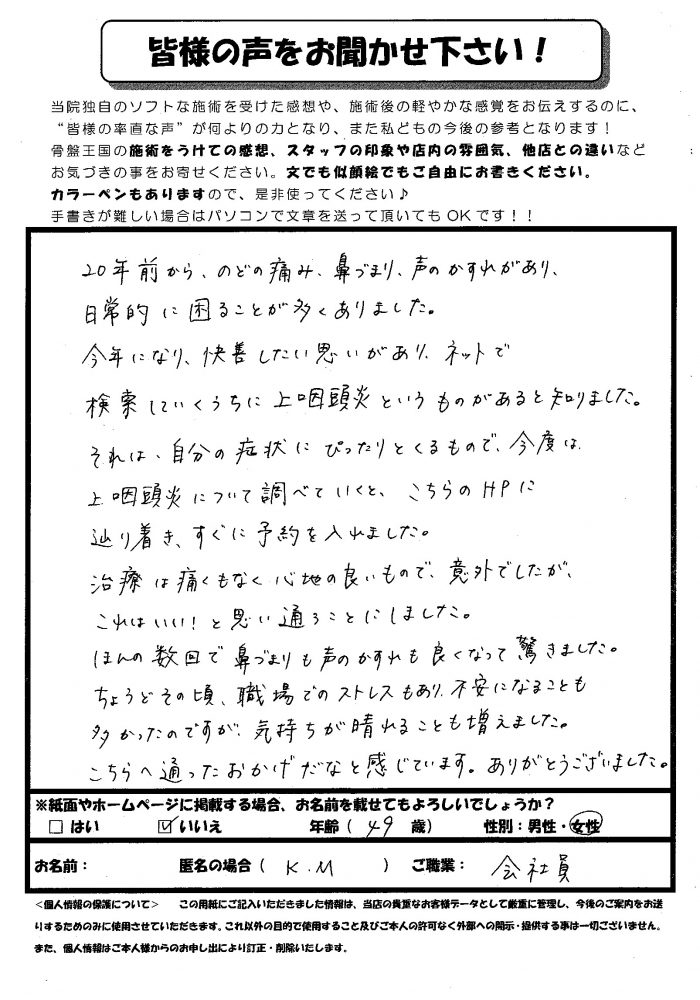 皆様の声をお聞かせ下さい！
当院独自のソフトな施術を受けた感想や、施術後の軽やかな感覚をお伝えするのに、
“皆様の率直な声”が何よりの力となり、また私どもの今後の参考となります！
骨盤王国の施術をうけての感想、スタッフの印象や店内の雰囲気、他店との違いなど
お気づきの事をお寄せください。文でも似顔絵でもご自由にお書きください。
カラーペンもありますので、是非使ってください♪
手書きが難しい場合はパソコンで文章を送って頂いてもOKです！！
20年前から、のどの痛み、鼻づまり、声のかすれがあり、
日常的に困ることが多くありました。
今年になり、快善したい思いがあり、ネットで
検索していくうちに上咽頭炎というものがあると知りました。
それは、自分の症状にぴったりとくるもので、今度は
上咽頭炎について調べていくと、こちらのHPに
辿り着き、すぐに予約を入れました。
治療は痛くもなく心地の良いもので、意外でしたが、
これはいい！と思い通ることにしました。
ほんの数回で鼻づまりも声のかすれも良くなって驚きました。
ちょうどその頃、職場でのストレスもあり、不安になることも
多かったのですが、気持ちが晴れることも増えました。
こちらへ通ったおかげだなと感じています。ありがとうございました。
※紙面やホームページに掲載する場合、お名前を載せてもよろしいでしょうか？
□はい ☑いいえ 年齢（ 49 歳） 性別：男性・女性
お名前： 匿名の場合（ K.M ） ご職業： 会社員
＜個人情報の保護について＞ この用紙にご記入いただきました情報は、当店の貴重なお客様データとして厳重に管理し、今後のご案内をお送
りするためのみに使用させていただきます。これ以外の目的で使用すること及びご本人の許可なく外部への開示・提供する事は一切ございません。
また、個人情報はご本人様からのお申し出により訂正・削除いたします。